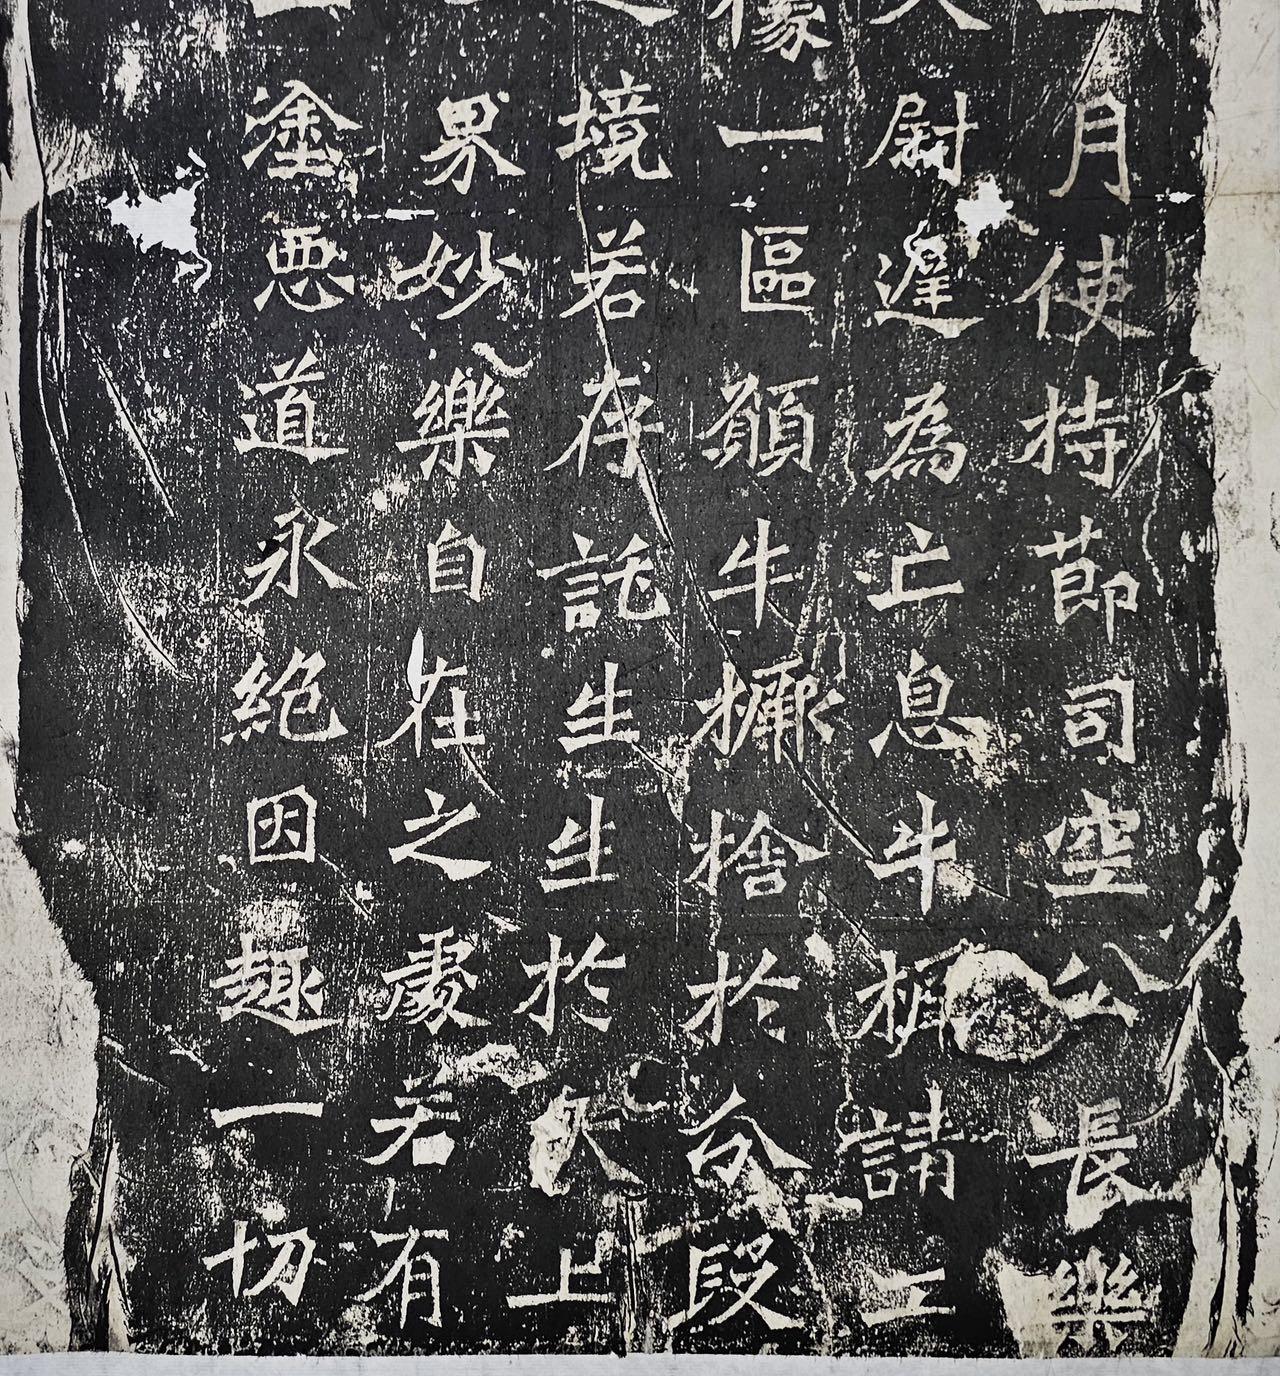 月使持節司空公長樂
人尉遲為亡息牛橛請工
像一區願牛橛捨於分段
之境若存託生生於天上
界妙樂自在之處若有
塗惡道永絕因趣一切